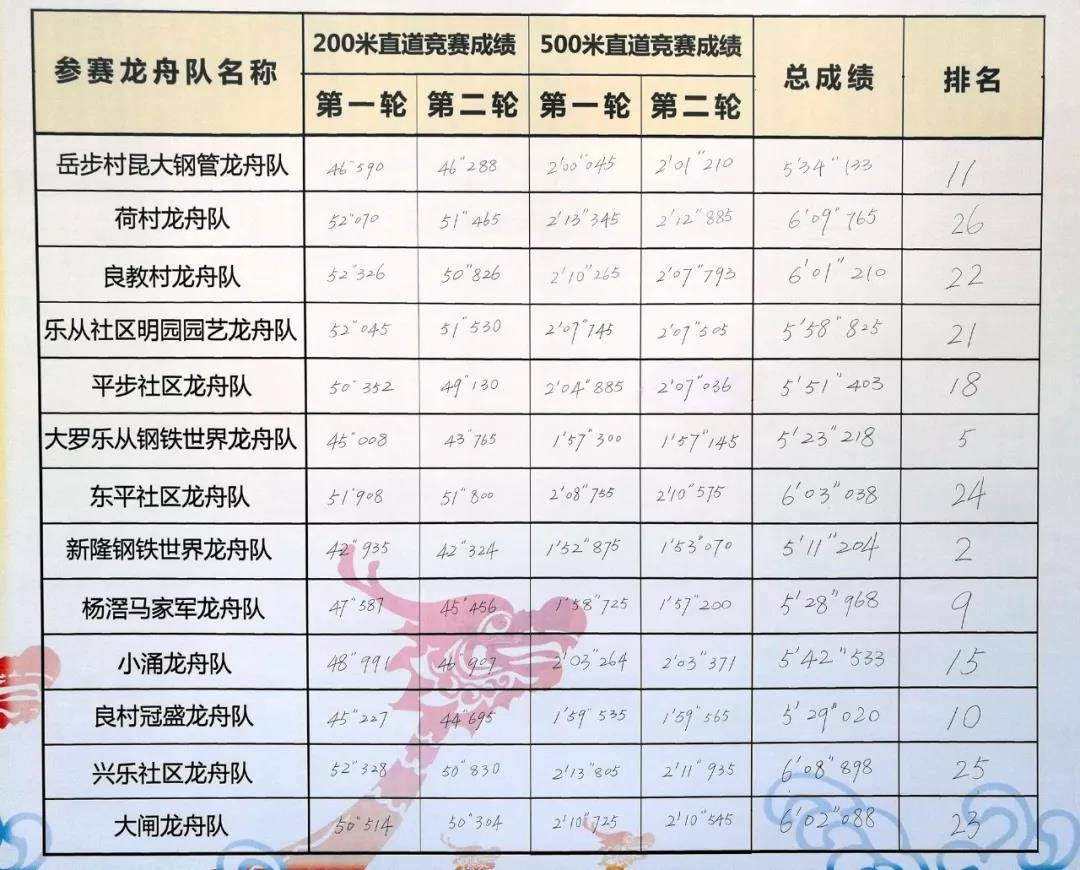 参赛龙舟队名称 200米直道竞赛成绩 500米直道竞赛成绩 总成绩 排名
第一轮 第二轮 第一轮 第二轮
岳步村昆大钢管龙舟队 46"590 46"288 2'00"045 2'01"210 5'34"133 11
荷村龙舟队 52"070 51"465 2'13"345 2'12"885 6'09"765 26
良教村龙舟队 52"326 50"826 2'10"265 2'07"793 6'01"210 22
乐从社区明园园艺龙舟队 52"045 51"530 2'07"745 2'07"505 5'58"825 21
平步社区龙舟队 50"352 49"130 2'04"885 2'07"036 5'51"403 18
大罗乐从钢铁世界龙舟队 45"008 43"765 1'57"300 1'57"145 5'23"218 5
东平社区龙舟队 51"908 51"800 2'08"755 2'10"575 6'03"038 24
新隆钢铁世界龙舟队 42"935 42"324 1'52"875 1'53"070 5'11"204 2
杨滘马家军龙舟队 47"587 45"456 1'58"725 1'57"200 5'28"968 9
小涌龙舟队 48"991 46"907 2'03"264 2'03"371 5'42"533 15
良村冠盛龙舟队 45"227 44"695 1'59"535 1'59"565 5'29"020 10
兴乐社区龙舟队 52"328 50"830 2'13"805 2'11"935 6'08"898 25
大闸龙舟队 50"514 50"304 2'10"725 2'10"545 6'02"088 23